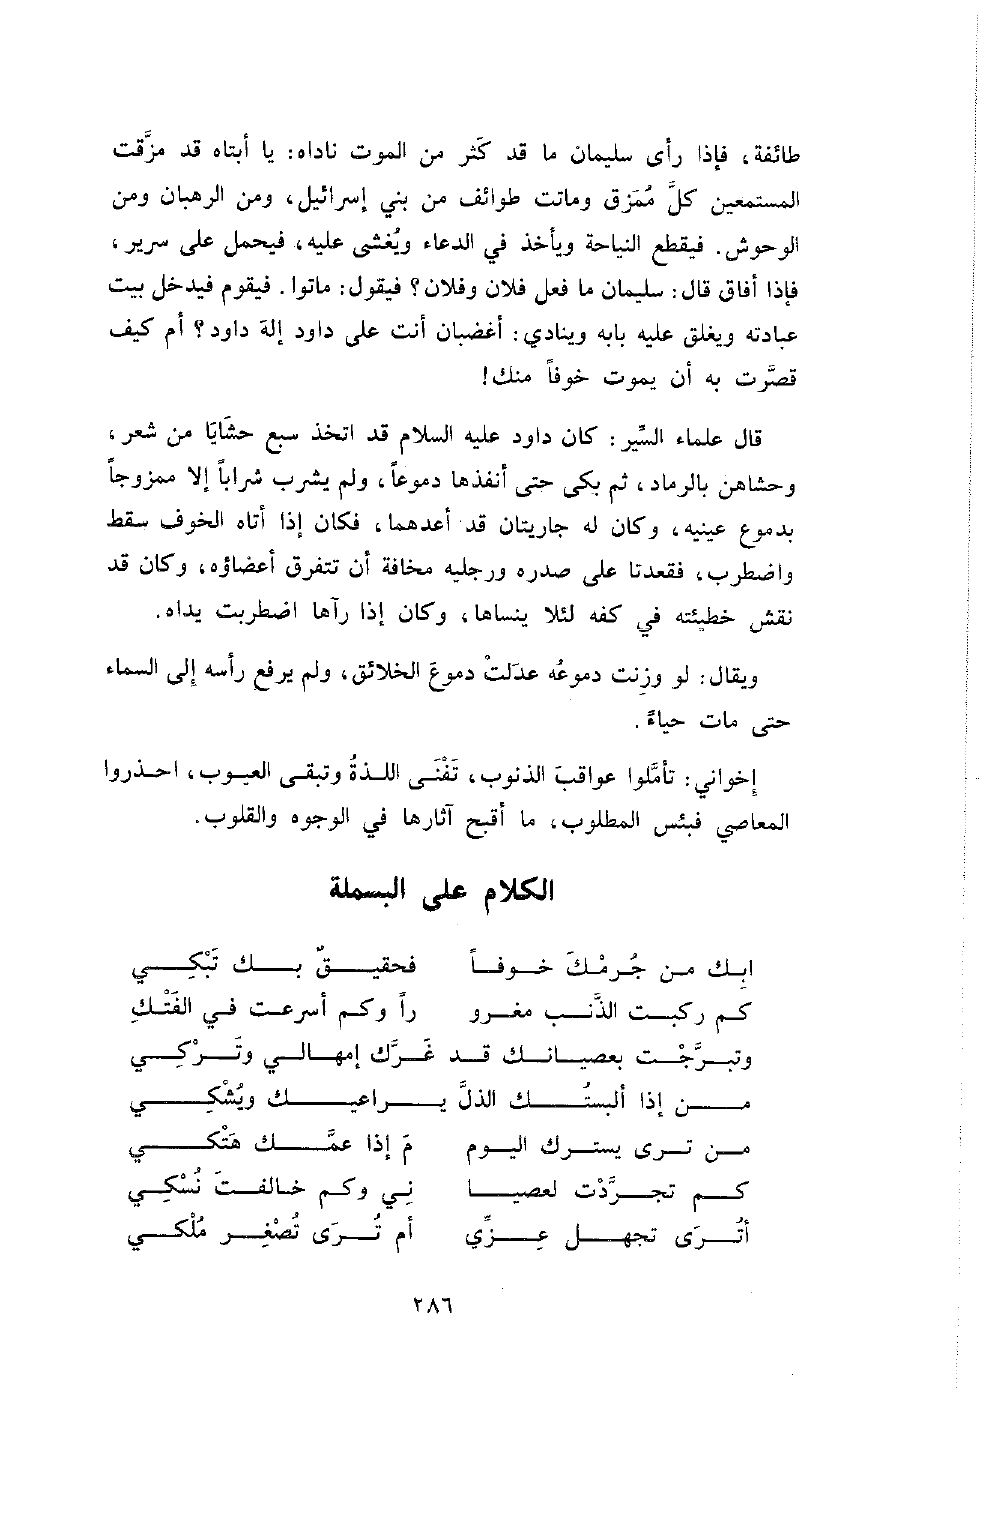 طائفة، فإذا رأى سليمان ما قد كَثر من الموت ناداه: يا أبتاه قد مزَّقت
المستمعين كلَّ مُمَزق وماتت طوائف من بني إسرائيل، ومن الرهبان ومن
الوحوش. فيقطع النياحة ويأخذ في الدعاء ويُغشى عليه، فيحمل على سرير،
فإذا أفاق قال: سليمان ما فعل فلان وفلان؟ فيقول: ماتوا. فيقوم فيدخل بيت
عبادته ويغلق عليه بابه وينادي: أغضبان أنت على داود إلهَ داود؟ أم كيف
قصَّرت به أن يموت خوفاً منك!
قال علماء السِّير: كان داود عليه السلام قد اتخذ سبع حشَايَا من شعر،
وحشاهن بالرماد، ثم بكى حتى أنفذها دموعاً، ولم يشرب شراباً إلا ممزوجاً
بدموع عينيه، وكان له جاريتان قد أعدهما، فكان إذا أتاه الخوف سقط
واضطرب، فقعدتا على صدره ورجليه مخافة أن تتفرق أعضاؤه، وكان قد
نقش خطيئته في كفه لئلا ينساها، وكان إذا رآها اضطربت يداه.
ويقال: لو وزِنت دموعُه عدَلتْ دموعَ الخلائق، ولم يرفع رأسه إلى السماء
حتى مات حياءً.
إخواني: تأمَّلوا عواقبَ الذنوب، تَفْنَى اللذةُ وتبقى العيوب، احذروا
المعاصي فبئس المطلوب، ما أقبح آثارها في الوجوه والقلوب.
الكلام على البسملة
ابكِ من جُرمْكَ خوفاً فحقيقٌ بك تَبْكِي
كم ركبت الذَّنب مغرو راً وكم أسرعت في الفَتْكِ
وتبرَّجْت بعصيانك قد غَرَّك إمهالي وتَرْكِي
من إذا ألبستُك الذلَّ يراعيك ويُشْكِي
من ترى يسترك اليوم مَ إذا عمَّك هَتْكي
كم تجرَّدْت لعصيا نِي وكم خالفتَ نُسْكِي
أتُرَى تجهل عِزِّي أم تُرَى تُصْغِر مُلْكي
٢٨٦